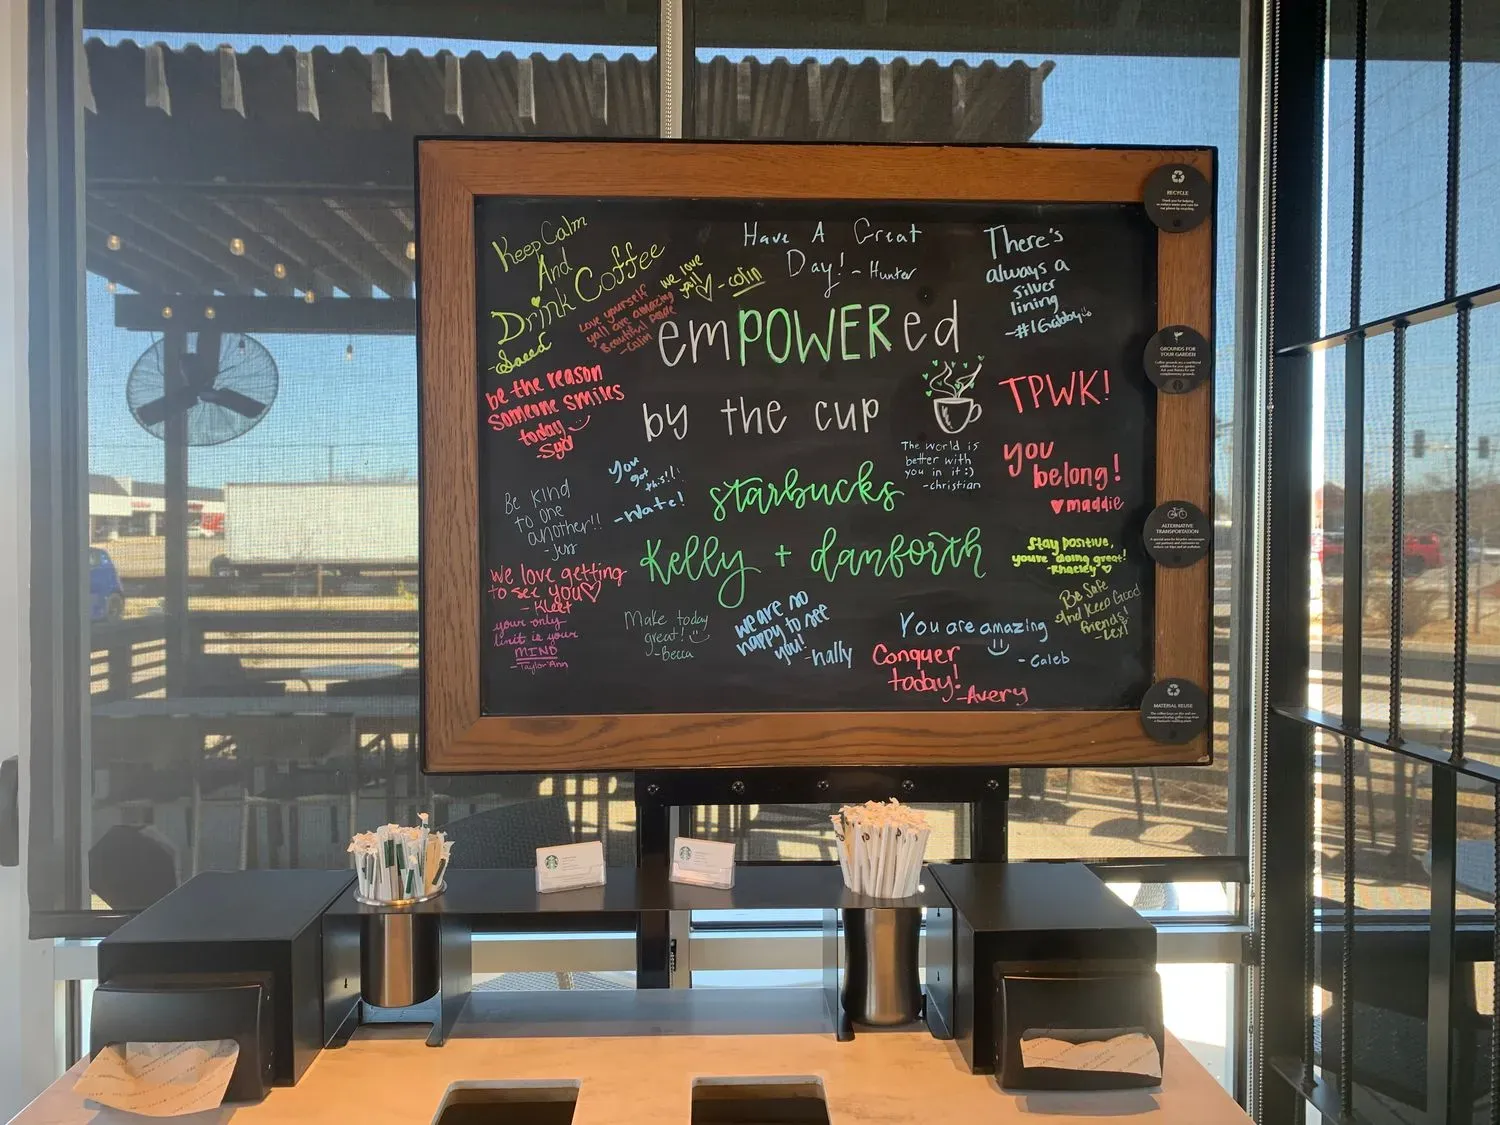 Keep Calm
And
Drink Coffee
-Saeed
we love
ya'll
- colin
Love yourself
yall are amazing
Beautiful people
-Colin
Have A Great
Day! - Hunter
There's
always a
silver
lining
-#1Gabby
emPOWERed
by the cup
be the reason
someone smiles
today
-Syd
TPWK!
you
belong!
maddie
The world is
better with
you in it :)
-christian
You
got
this!!
-Nate!
starbucks
Kelly + danforth
Be kind
to one
another!!
we love getting
to see you
your only
limit is your
MIND
-Taylor Ann
Stay positive,
you're doing great!
Be Safe
And Keep Good
friends!
-Lexi
Make today
great!
-Becca
we are so
happy to see
you!
-hally
You are amazing
- Caleb
Conquer
today!
-Avery
RECYCLE
GROUNDS FOR
YOUR GARDEN
ALTERNATIVE
TRANSPORTATION
MATERIAL REUSE